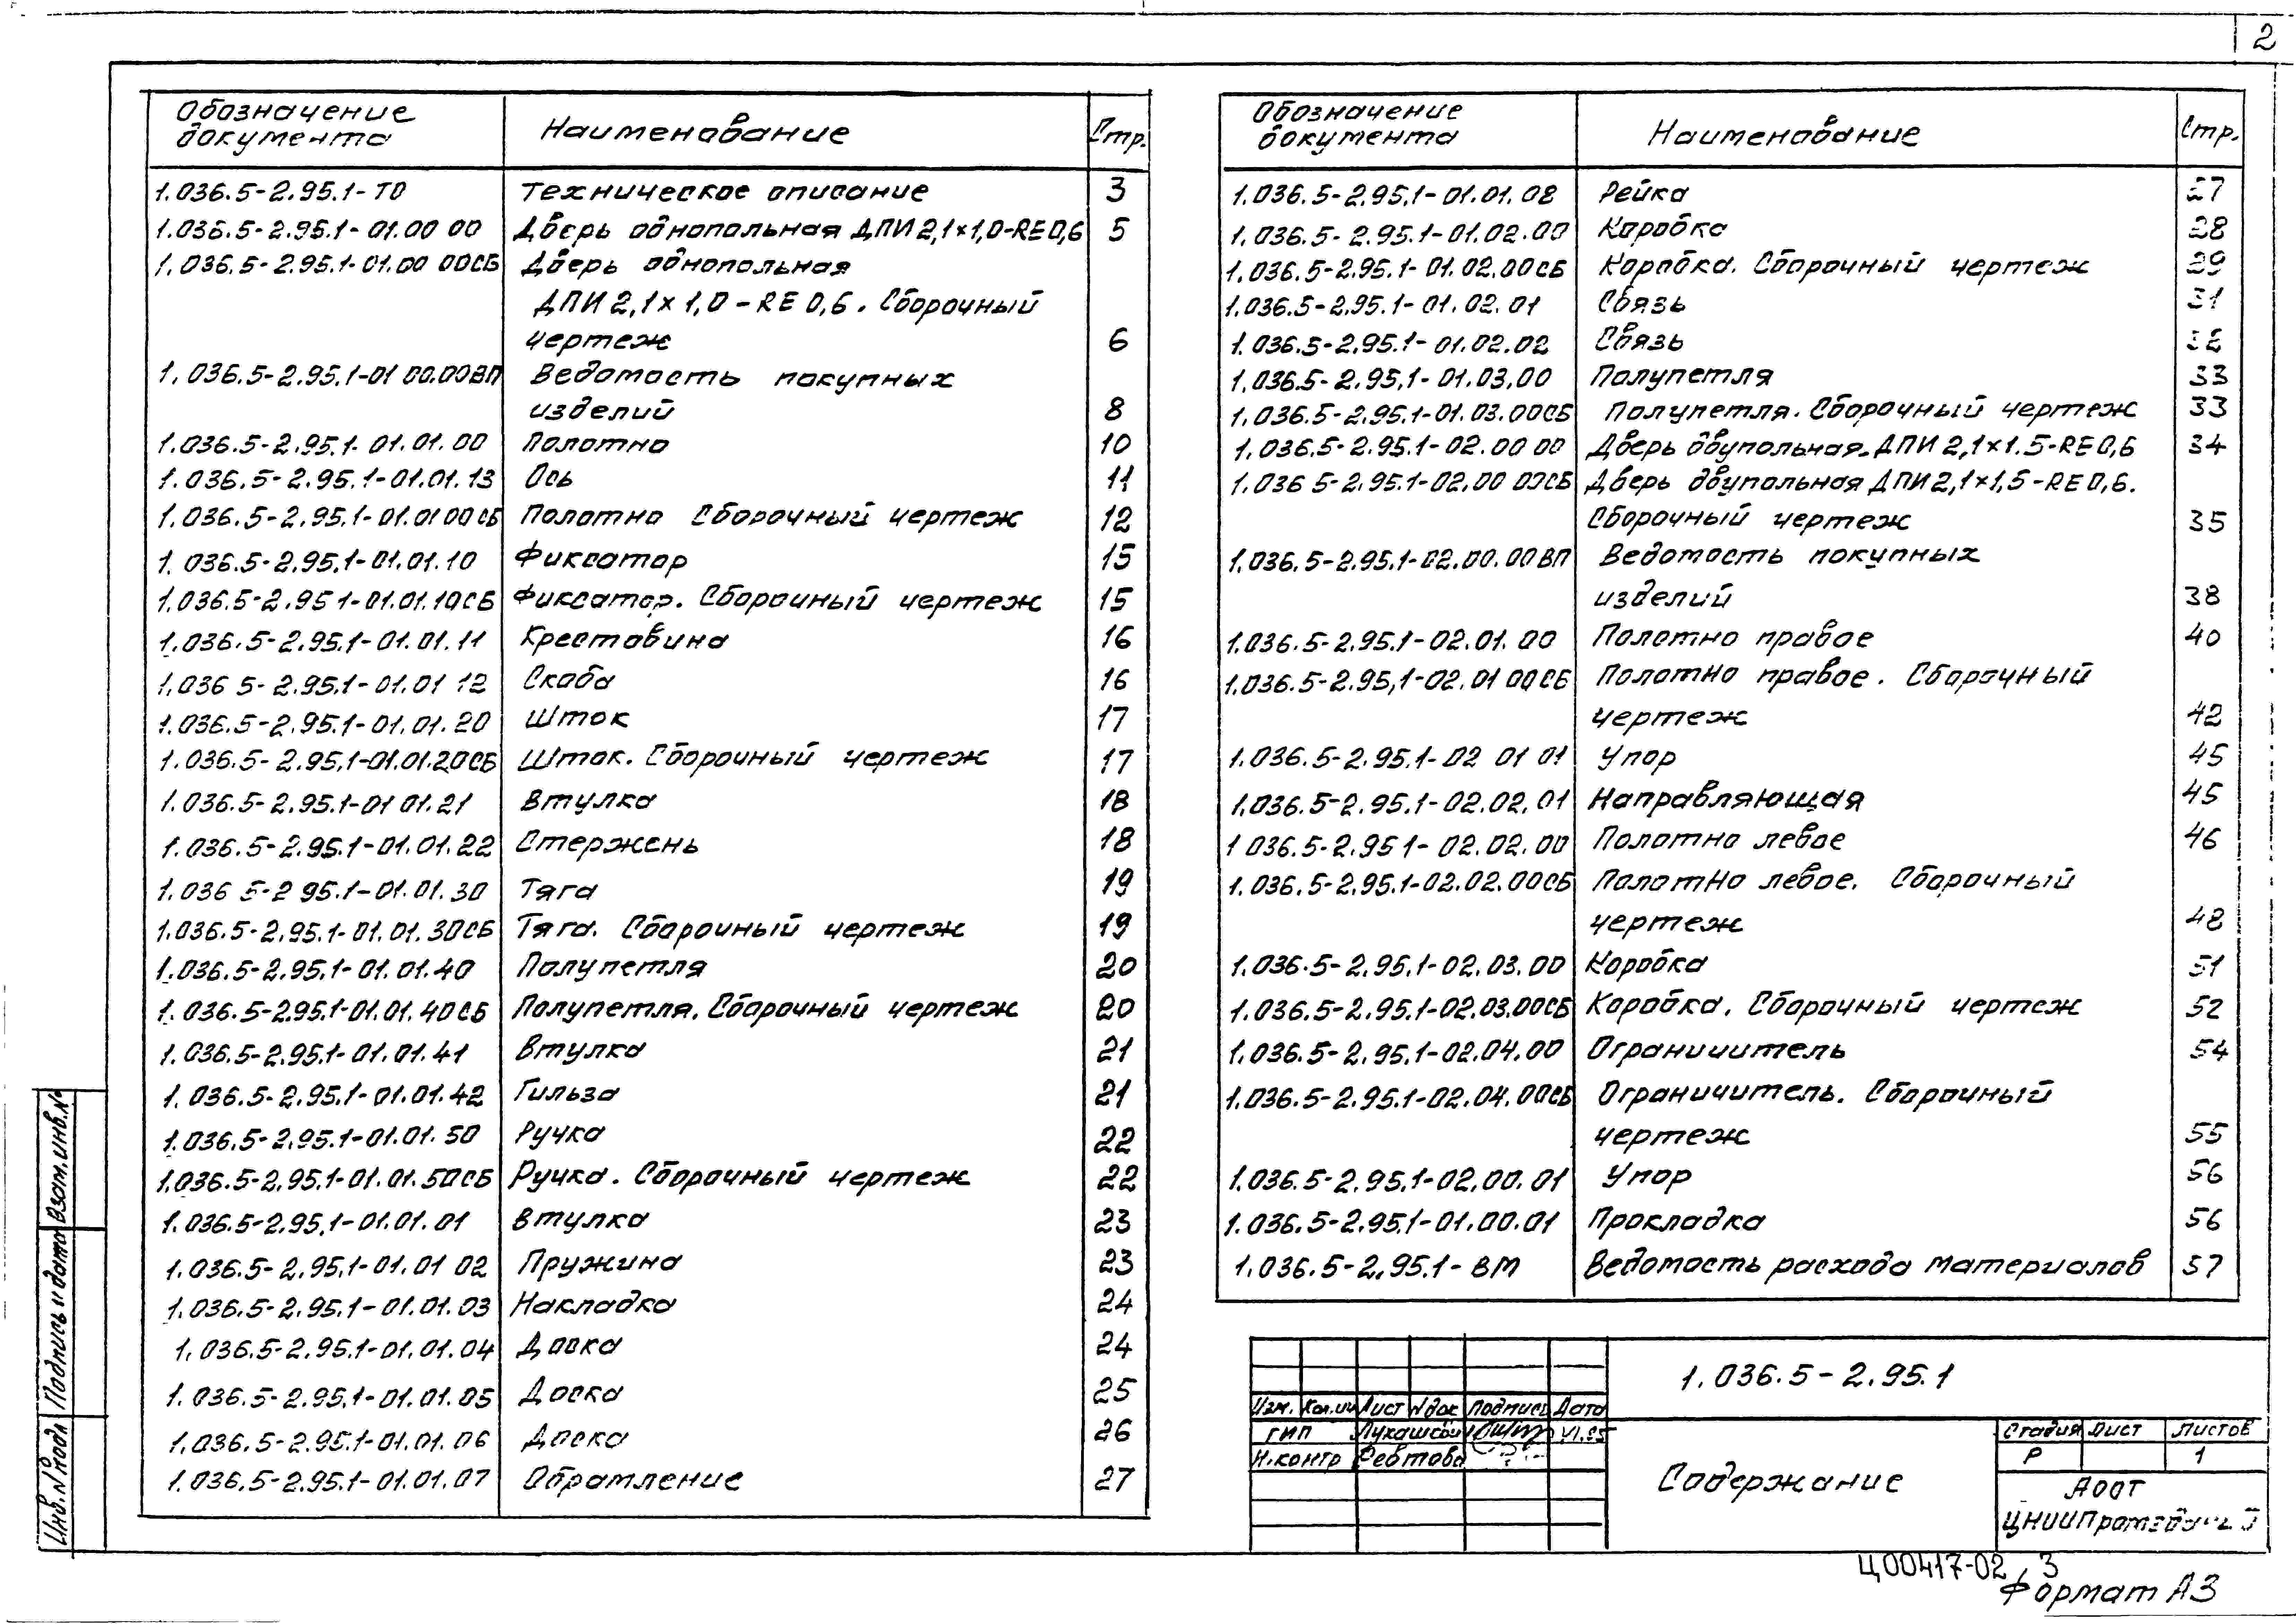 2
Обозначение документа Наименование Стр.
1.036.5-2.95.1-ТО Техническое описание 3
1.036.5-2.95.1-01.00 00 Дверь однопольная ДПИ 2,1×1,0-RE 0,6 5
1.036.5-2.95.1-01.00 00СБ Дверь однопольная
ДПИ 2,1×1,0-RE 0,6. Сборочный
чертеж 6
1.036.5-2.95.1-01 00.00ВП Ведомость покупных
изделий 8
1.036.5-2.95.1-01.01.00 Полотно 10
1.036.5-2.95.1-01.01.13 Ось 11
1.036.5-2.95.1-01.01 00СБ Полотно Сборочный чертеж 12
1.036.5-2.95.1-01.01.10 Фиксатор 15
1.036.5-2.95 1-01.01.10СБ Фиксатор. Сборочный чертеж 15
1.036.5-2.95.1-01.01.11 Крестовина 16
1.036 5-2.95.1-01.01 12 Скоба 16
1.036.5-2.95.1-01.01.20 Шток 17
1.036.5-2.95.1-01.01.20СБ Шток. Сборочный чертеж 17
1.036.5-2.95.1-01 01.21 Втулка 18
1.036.5-2.95.1-01.01.22 Стержень 18
1.036 5-2 95.1-01.01.30 Тяга 19
1.036.5-2.95.1-01.01.30СБ Тяга. Сборочный чертеж 19
1.036.5-2.95.1-01.01.40 Полупетля 20
1.036.5-2.95.1-01.01.40СБ Полупетля. Сборочный чертеж 20
1.036.5-2.95.1-01.01.41 Втулка 21
1.036.5-2.95.1-01.01.42 Гильза 21
1.036.5-2.95.1-01.01.50 Ручка 22
1.036.5-2.95.1-01.01.50СБ Ручка. Сборочный чертеж 22
1.036.5-2.95.1-01.01.01 Втулка 23
1.036.5-2.95.1-01.01 02 Пружина 23
1.036.5-2.95.1-01.01.03 Накладка 24
1.036.5-2.95.1-01.01.04 Доска 24
1.036.5-2.95.1-01.01.05 Доска 25
1.036.5-2.95.1-01.01.06 Доска 26
1.036.5-2.95.1-01.01.07 Обрамление 27
Обозначение документа Наименование Стр.
1.036.5-2.95.1-01.01.08 Рейка 27
1.036.5-2.95.1-01.02.00 Коробка 28
1.036.5-2.95.1-01.02.00СБ Коробка. Сборочный чертеж 29
1.036.5-2.95.1-01.02.01 Связь 31
1.036.5-2.95.1-01.02.02 Связь 32
1.036.5-2.95.1-01.03.00 Полупетля 33
1.036.5-2.95.1-01.03.00СБ Полупетля. Сборочный чертеж 33
1.036.5-2.95.1-02.00 00 Дверь двупольная ДПИ 2,1×1.5-RE 0,6 34
1.036 5-2.95.1-02.00 00СБ Дверь двупольная ДПИ 2,1×1,5-RE 0,6.
Сборочный чертеж 35
1.036.5-2.95.1-02.00.00ВП Ведомость покупных
изделий 38
1.036.5-2.95.1-02.01.00 Полотно правое 40
1.036.5-2.95.1-02.01 00СБ Полотно правое. Сборочный
чертеж 42
1.036.5-2.95.1-02 01 01 Упор 45
1.036.5-2.95.1-02.02.01 Направляющая 45
1 036.5-2.95 1-02.02.00 Полотно левое 46
1.036.5-2.95.1-02.02.00СБ Полотно левое. Сборочный
чертеж 48
1.036.5-2.95.1-02.03.00 Коробка 51
1.036.5-2.95.1-02.03.00СБ Коробка. Сборочный чертеж 52
1.036.5-2.95.1-02.04.00 Ограничитель 54
1.036.5-2.95.1-02.04.00СБ Ограничитель. Сборочный
чертеж 55
1.036.5-2.95.1-02.00.01 Упор 56
1.036.5-2.95.1-01.00.01 Прокладка 56
1.036.5-2.95.1-ВМ Ведомость расхода материалов 57
Инв.№подл Подпись и дата Взат.инв.№
1.036.5-2.95.1
Изм. Кол.уч Лист №док Подпись Дата
ГИП VI.95
Н.контр Ревтова
Содержание
Стадия Лист Листов
Р 1
АООТ
ЦНИИПромзданий
Ц00417-02 3
Формат А3